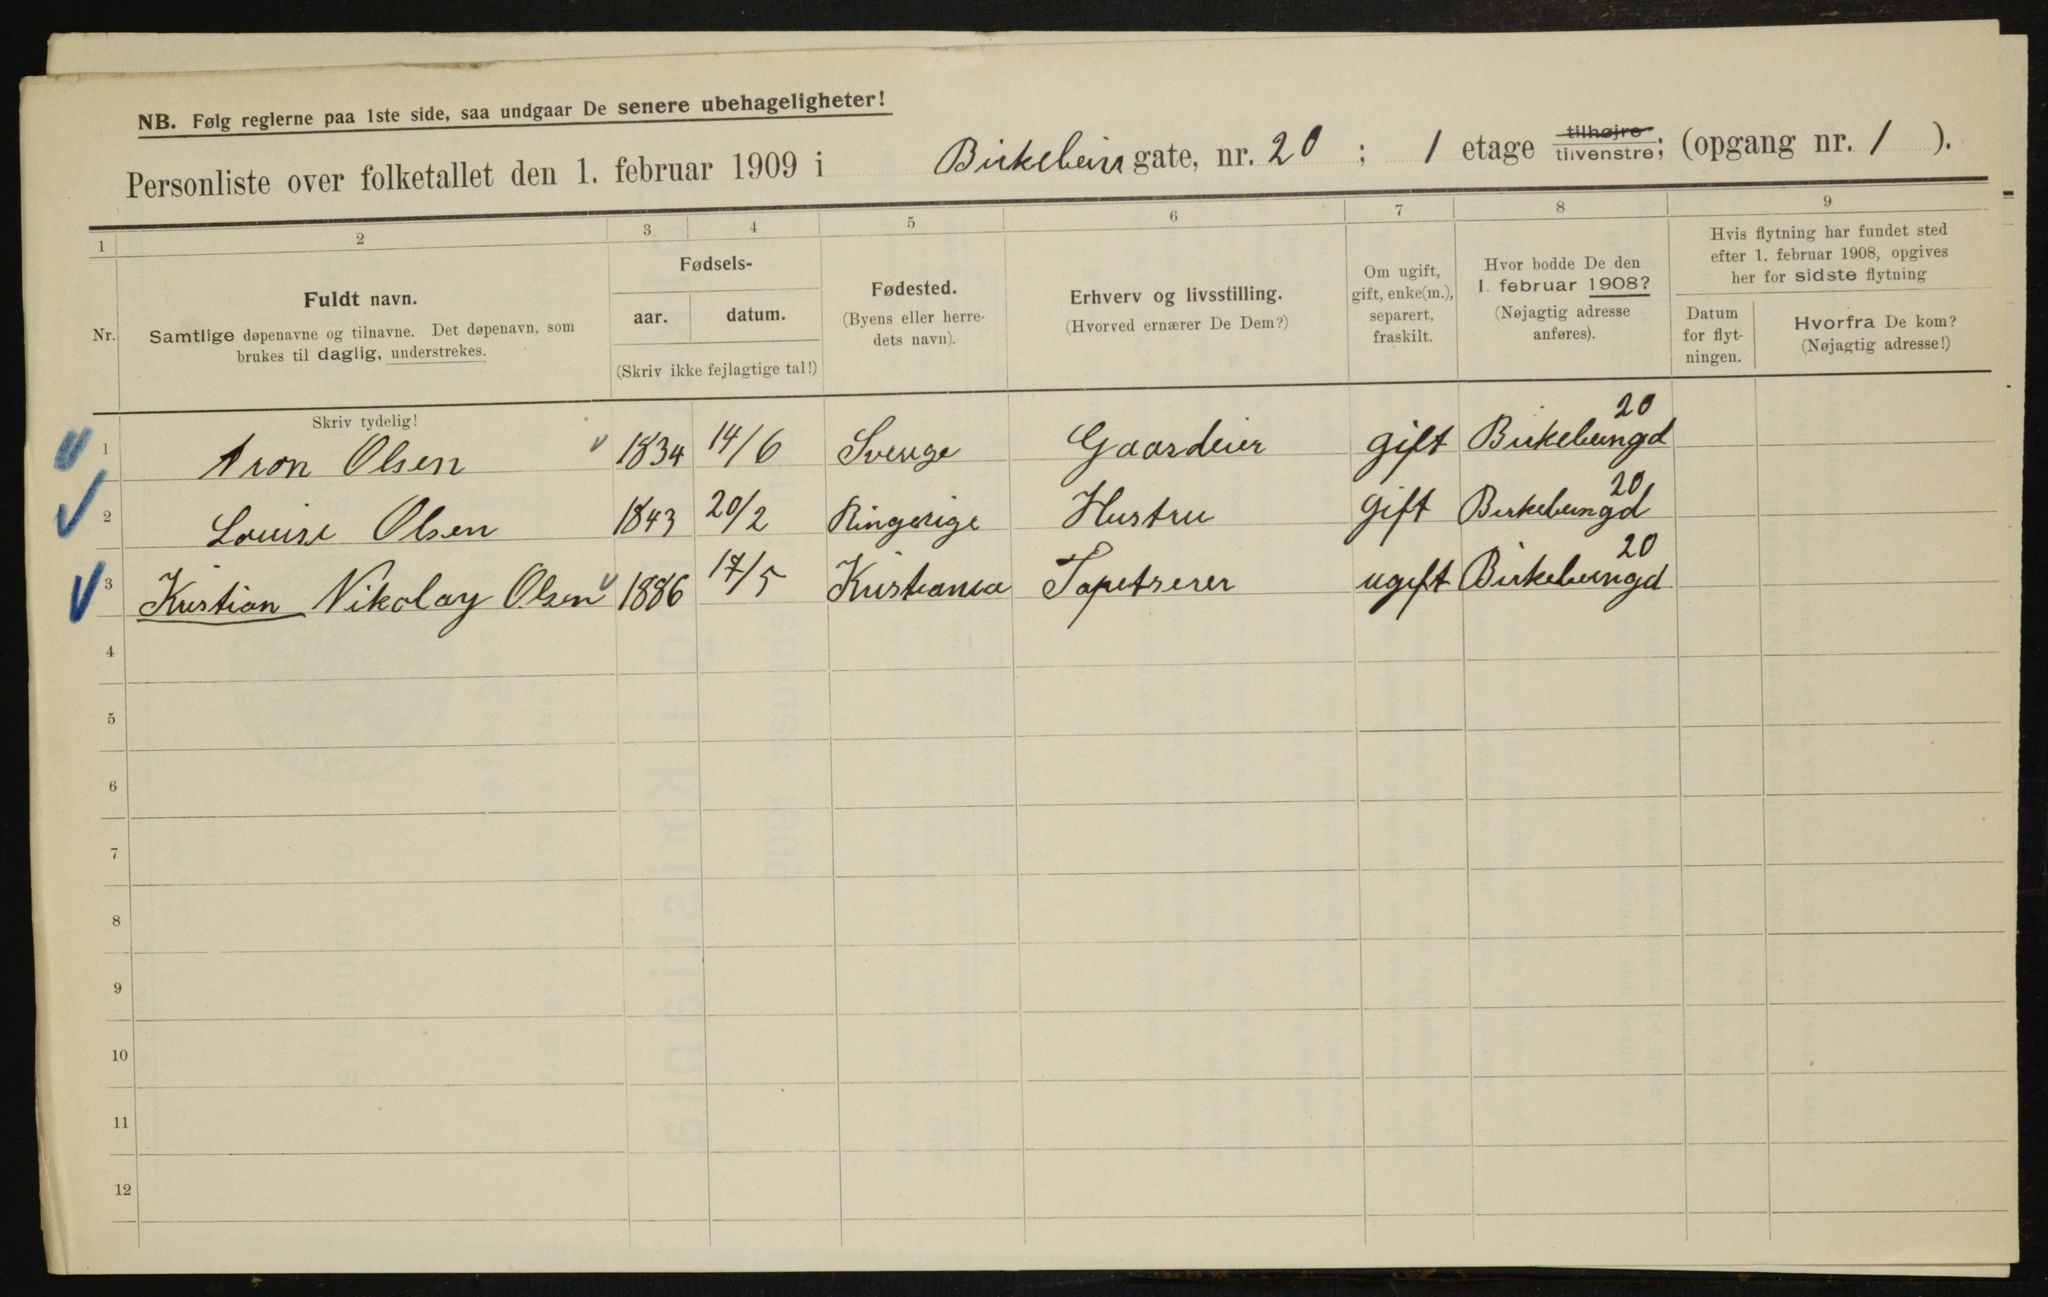 NB. Følg reglerne paa 1ste side, saa undgaar De senere ubehageligheter!
Personliste over folketallet den 1. februar 1909 i Birkebeinergate, nr. 20 ; 1 etage tilhøjre tilvenstre; (opgang nr. 1 ).
1 2 3 4 5 6 7 8 9
Nr.
Fuldt navn.
Samtlige døpenavne og tilnavne. Det døpenavn, som
brukes til daglig, understrekes.
Fødsels-
aar. datum.
(Skriv ikke fejlagtige tal!)
Fødested.
(Byens eller herre-
dets navn).
Erhverv og livsstilling.
(Hvorved ernærer De Dem?)
Om ugift,
gift, enke(m.),
separert,
fraskilt.
Hvor bodde De den
1. februar 1908?
(Nøjagtig adresse
anføres).
Hvis flytning har fundet sted
efter 1. februar 1908, opgives
her for sidste flytning
Datum
for flyt-
ningen.
Hvorfra De kom?
(Nøjagtig adresse!)
Skriv tydelig!
1 Aron Olsen 1834 14/6 Sverige Gaardeier gift Birkebeingd 20
2 Louise Olsen 1843 20/2 Ringerige Hustru gift Birkebeingd 20
3 Kristian Nikolay Olsen 1886 17/5 Kristiania Tapetserer ugift Birkebeingd 20
4
5
6
7
8
9
10
11
12